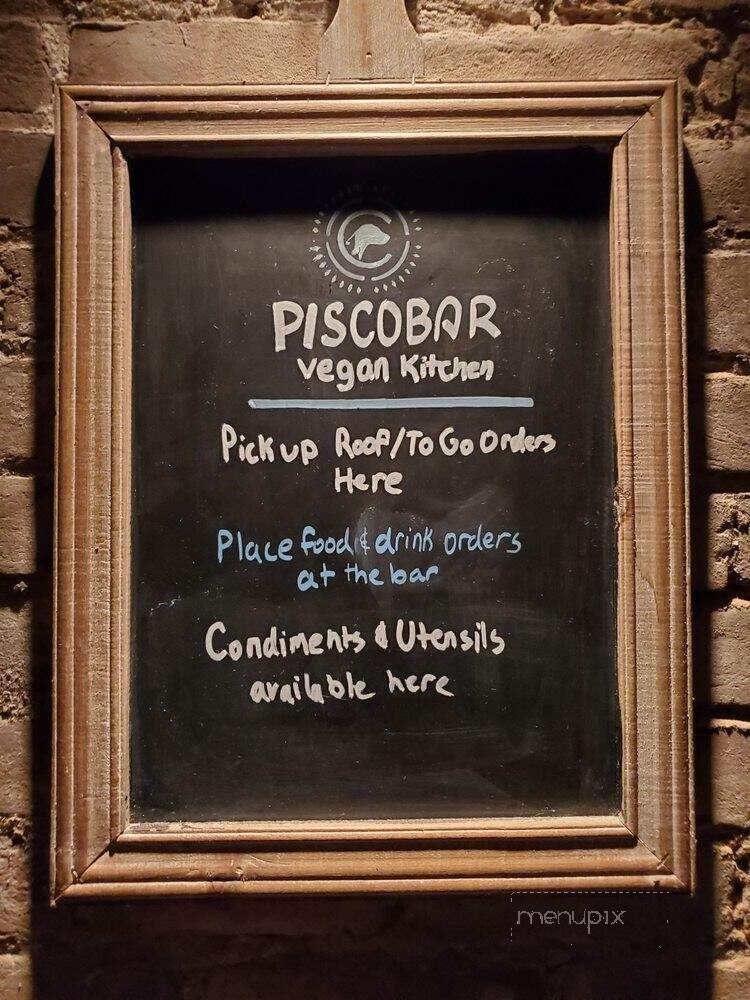 PISCOBAR
vegan Kitchen
Pick up Roof/To Go Orders
Here
Place food & drink orders
at the bar
Condiments & Utensils
available here
menupix